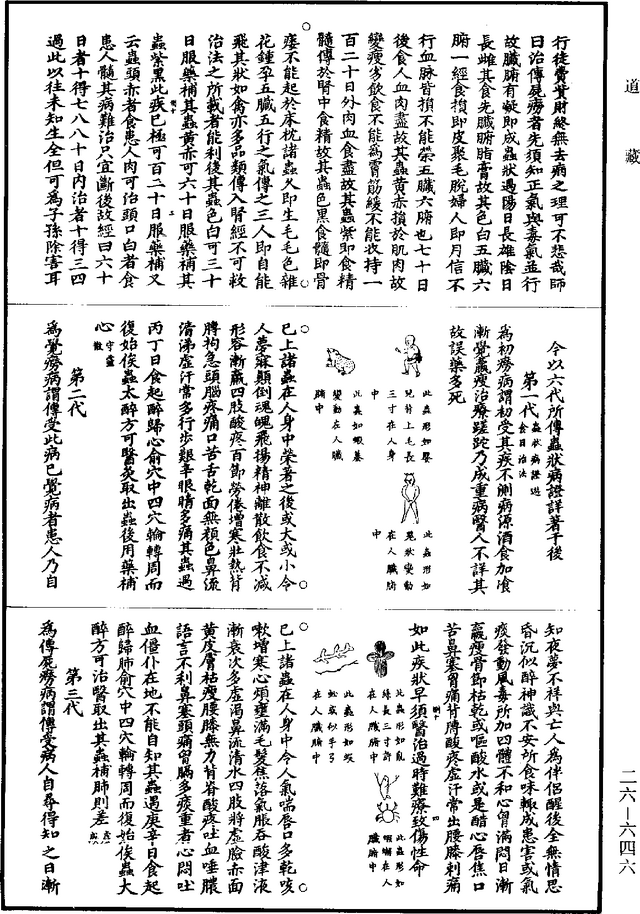 道藏
行徒費貲財終無去病之理可不悲哉師
曰治傳屍癆者先須知正氣與毒氣並行
故臟腑有凝即成蟲狀遇陽日長雄陰日
長雌其食先臟腑脂膏故其色白五臟六
腑一經食損即皮聚毛脫婦人即月信不
行血脉皆損不能榮五臟六腑也七十日
後食人血肉盡故其蟲黃赤損於肌肉故
變瘦劣飲食不能為霄筋緩不能收持一
百二十日外肉血食盡故其蟲紫即食精
髓傳於腎中食精故其蟲色黑食髓即骨
痿不能起於床枕諸蟲久即生毛毛色雜
花鍾孕五臟五行之氣傳之三人即自能
飛其狀如禽亦多品類傳入腎經不可救
治法之所載者能利後其蟲色白可三十
日服藥補其蟲黃赤可六十日服藥補其
蟲紫黑此疾已極可百二十日服藥補又
云蟲頭赤者食患人肉可治頭口白者食
患人髓其病難治只宜斷後故經曰六十
日者十得七八八十日內治者十得三四
過此以往未知生全但可為子孫除害耳
今以六代所傳蟲狀病證詳著于後
第一代 蟲狀病證遊食日治法
為初癆病謂初受其疾不測病源酒食加飡
漸覺羸瘦治療蹉跎乃成重病醫人不詳其
故誤藥多死
此蟲形如嬰
兒背上毛長
三寸在人身
中
此蟲形如
鬼狀變動
在人臟腑
中
此蟲如蝦蟇
變動在人臟
腑中
已上諸蟲在人身中榮著之後或大或小令
人夢寐顛倒魂魄飛揚精神離散飲食不減
形容漸羸四肢酸疼百節勞倦增寒壯熱背
膊拘急頭腦疼痛口苦舌乾面無顏色鼻流
清涕虛汗常多行步艱辛眼睛多痛其蟲遇
丙丁日食起醉歸心俞穴中四穴輪轉周而
復始俟蟲大醉方可醫灸取出蟲後用藥補
心 守靈散
第二代
為覺癆病謂傳受此病已覺病者患人乃自
知夜夢不祥與亡人為伴侶醒後全無情思
昏沉似醉神識不安所食味輒成患害或氣
痰發動風毒所加四體不和心胷滿悶日漸
羸瘦骨節枯乾或嘔酸水或是醋心唇焦口
苦鼻塞胷痛背膊酸疼虛汗常出腰膝刺痛
如此疾狀早須醫治過時難療致傷性命
此蟲形如亂
絲長三寸許
在人臟腑中
此蟲形如
蜈蚣在人
臟腑中
此蟲形如蝦
蚣或似乎弓
在人臟腑中
已上諸蟲在人身中令人氣喘唇口多乾咳
嗽增寒心煩壅滿毛髮焦落氣脹吞酸津液
漸衰次多虛渴鼻流清水四肢將虛臉赤面
黃皮膚枯瘦腰膝無力背脊酸疼吐血唾膿
語言不利鼻塞頭痛胷膈多痰重者心悶吐
血僵仆在地不能自知其蟲遇庚辛日食起
醉歸肺俞穴中四穴輪轉周而復始俟蟲大
醉方可治醫取出其蟲補肺則瘥
第三代
為傳屍癆病謂傳受病人自尋得知之日漸
二六—六四六